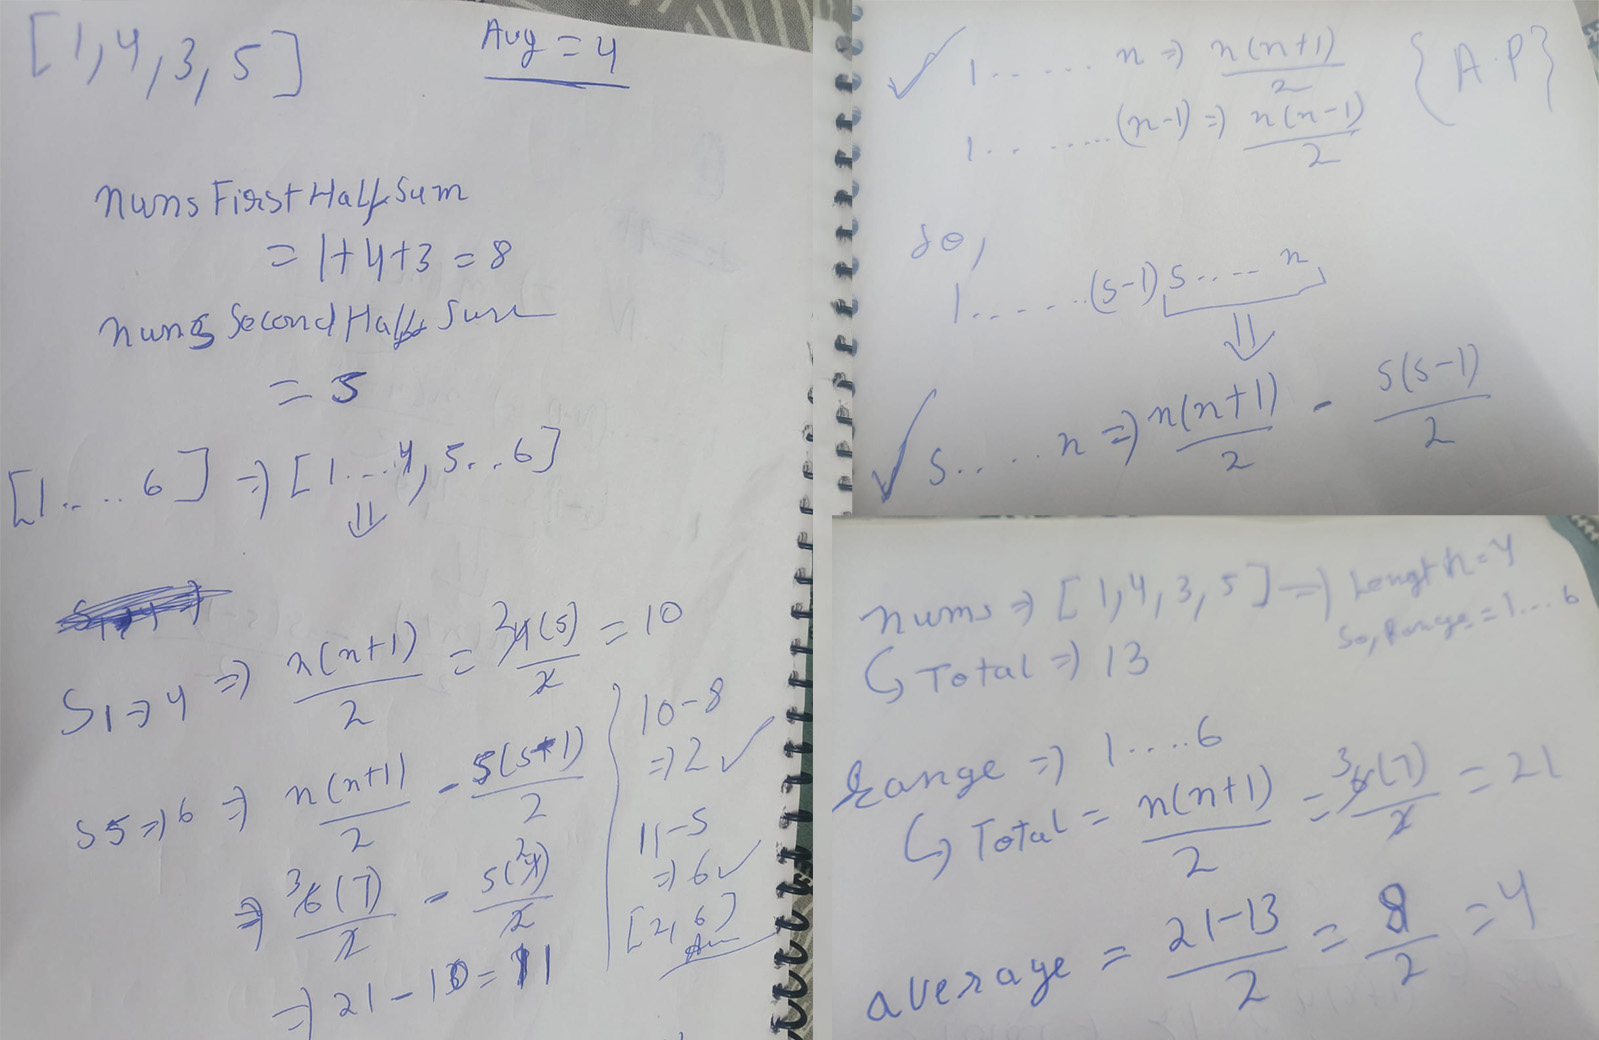 [1,4,3,5]
Avg = 4
nums First Half Sum
= 1+4+3 = 8
nums Second Half Sum
= 5
[1....6] => [1...4, 5..6]
⇓
S1→4 => n(n+1)/2 = 2 4(5)/2 = 10
S5→6 => n(n+1)/2 - 5(5-1)/2
=> 3 6(7)/2 - 5(2 4)/2
=> 21 - 10 = 11
10-8
=> 2 ✓
11-5
=> 6 ✓
[2,6]
Ans
✓ 1......n => n(n+1)/2 {A.P}
1........(n-1) => n(n-1)/2
So,
1......(s-1) s.... n
⇓
✓ s.....n => n(n+1)/2 - s(s-1)/2
nums => [1,4,3,5] => Length = 4
So, Range = 1...6
↳ Total => 13
Range => 1....6
↳ Total = n(n+1)/2 = 3 6(7)/2 = 21
average = 21-13/2 = 8/2 = 4